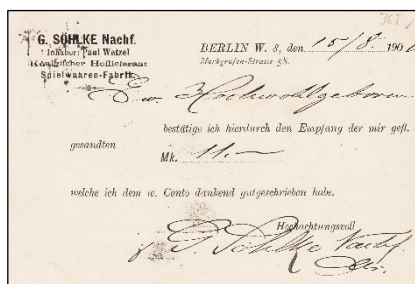 G. SÖHLKE Nachf.
Inhaber: Paul Watzel
Königlicher Hoflieferant
Spielwaaren-Fabrik.
BERLIN W. 8, den 15/8. 190
Markgrafen-Strasse 58.
Ew. Hochwohlgeboren
bestätige ich hierdurch den Empfang der mir gefl.
gesandten
Mk. 11.—
welche ich dem w. Conto dankend gutgeschrieben habe.
Hochachtungsvoll
G. Söhlke Nachf.